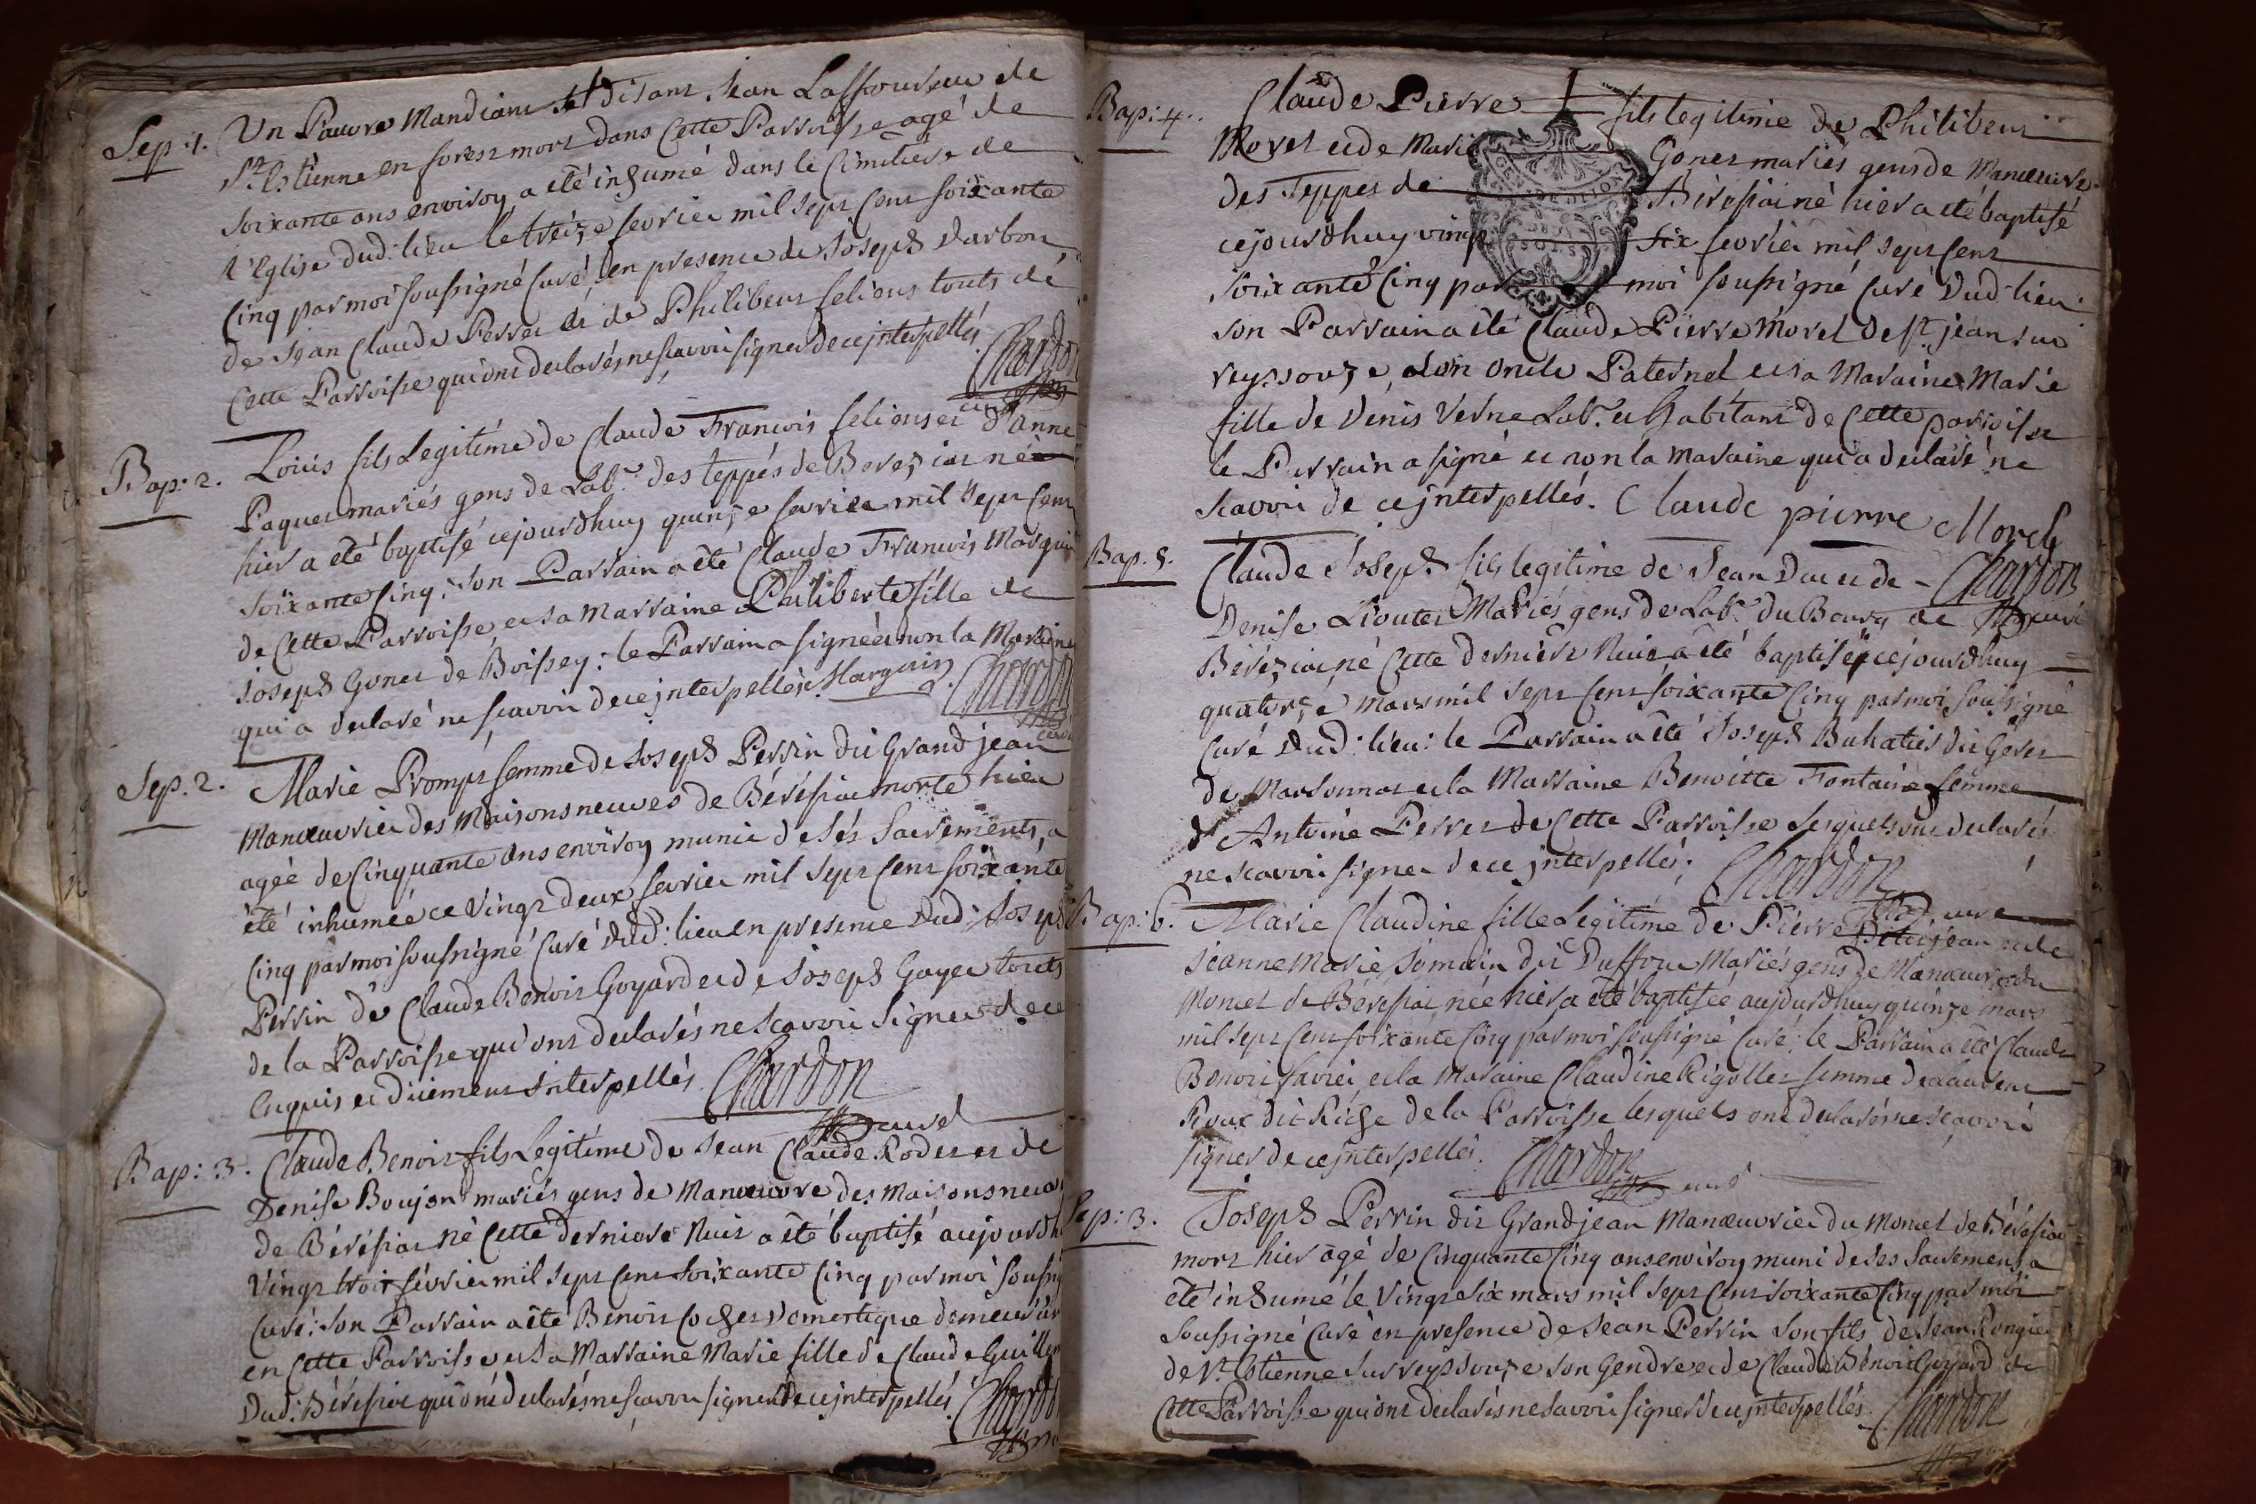 Sep. 1. Un Pauvre Mandiant se disant Jean Laffouseur de
St Estienne en forest mort dans Cette Parroisse agé de
soixante ans environ a été inhumé dans le Cimetiere de
l'Eglise dud: lieu le treize fevrier mil sept Cent soixante
Cinq par moi soussigné Curé en presence de Joseph Darbon
de Jean Claude Perret et de Philibert feliens touts de
Cette Parroisse qui ont declarés ne scavoir signer de ce jnterpellés
Chardon
curé
Bap: 2. Loüis fils Legitime de Claude Francois feliens et d'Anne
Paquet mariés gens de Lab.r des teppes de Bereziat né
hier a été baptisé cejourdhuy quinze fevrier mil sept Cent
soixante Cinq: son Parrain a été Claude Francois Marguin
de Cette Parroisse et sa Marraine Philiberte fille de
Joseph Gonet de Boissey: le Parrain a signé et non la Marraine
qui a declaré ne scavoir de ce jnterpellée. Marguin. Chardon
curé
Sep. 2. Marie Prompt femme de Joseph Perrin dit Grandjean
Manœuvrier des Maisonsneuves de Bérésiat morte hier
agéé de Cinquante Ans environ munie de sés Sacrements, a
été inhumée ce Vingt deux fevrier mil sept Cent soixante
Cinq par moi soussigné Curé dud: lieu en presence dud: Joseph
Perrin de Claude Benoit Goyard et de Joseph Goyer touts
de la Parroisse qui ont declarés ne Scavoir Signer de ce
Enquis et düement Interpellés. Chardon
curé
Bap: 3. Claude Benoit fils Legitime de Jean Claude Rodet et de
Denise Boujon mariés gens de Manœuvre des Maisonsneuv
de Bérésiat né Cette derniere Nuit a été baptisé aujourdh
Vingt trois fevrier mil sept Cent soixante Cinq par moi soussi
Curé: son Parrain a été Benoit Cochet domestique demeuran
en Cette Parroisse et sa Marraine Marie fille de Claude Guille
Dud: Bérésiat qui ont declarés ne scavoir signer de ce jnterpellés. Chardon
Bap: 4. Claude Pierre fils legitime de Philibert
Morel et de Marie Gonet mariés gens de Manœuvre
des Teppes de Bérésiat né hier a été baptisé
cejourdhuy vingt six fevrier mil sept Cent
soixante Cinq par moi soussigné Curé dud: lieu:
GEN
son Parrain a été Claude Pierre Morel de St jean sur
reyssouze, son Oncle Paternel et sa Maraine Marie
fille de Denis Verne Lab.r et habitant de Cette parroisse
le Parrain a signé et non la maraine qui a declaré ne
scavoir de ce jnterpellés. Claude pierre Morel
Bap. 5. Claude Joseph fils legitime de Jean Duc et de - Chardon
Denise Mariés gens de Lab.r du Bourg de curé
Béréziat né Cette derniere Nuit a été baptisé cejourdhuy
quatorze mars mil sept Cent soixante Cinq par moi soussigné
Curé dud: lieu: le Parrain a été Joseph
de Marsonnas et la Marraine Benoitte Fontaine femme
d'Antoine Perret de Cette Parroisse lesquels ont declarés
ne scavoir signer de ce jnterpellés. Chardon
curé
Bap: 6. Marie Claudine fille Legitime de Pierre Petitjean et de
Jeanne Marie Somain dit Duffour Mariés gens de Manœuvre du
Moncet de Bérésiat née hier a été baptisée aujourdhuy quinze mars
mil sept Cent soixante Cinq par moi soussigné Curé: le Parrain a été Claude
Benoit favier et la Maraine Claudine Rigollet femme de Laurent
Roux dit Riche de la Parroisse lesquels ont declarés ne scavoir
signer de ce jnterpellés. Chardon
curé
Sep: 3. Joseph Perrin dit Grandjean Manœuvrier du Moncet de Bérésiat
mort hier âgé de Cinquante Cinq ans environ muni de ses Sacremens a
été inhumé le Vingt six mars mil sept Cent soixante Cinq par moi
Soussigné Curé en presence de Jean Perrin Son fils de Jean
de St Estienne sur reyssouze son Gendre et de Claude Benoit Goyard de
Cette Parroisse qui ont declarés ne savoir signer de ce jnterpellés. Chardon